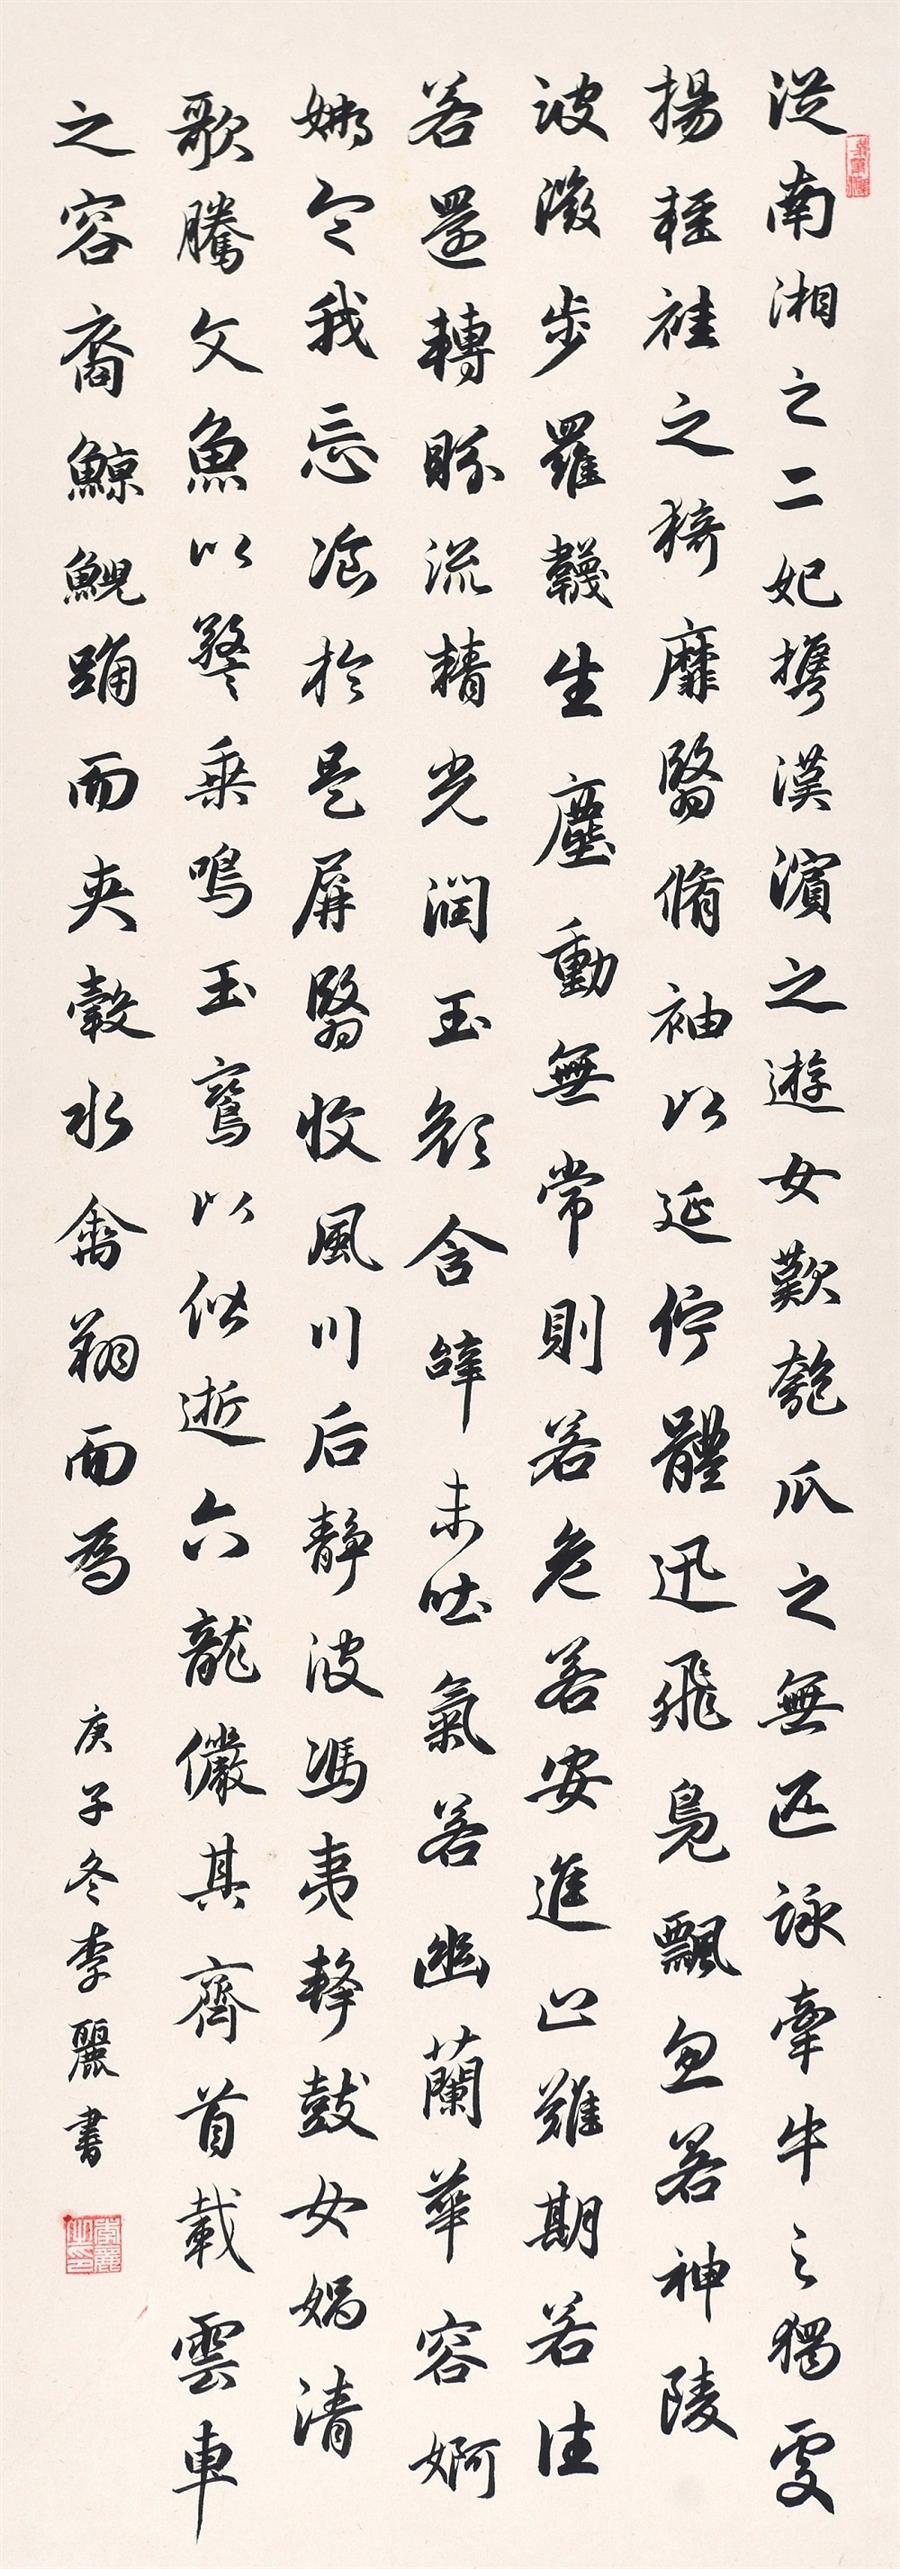 從南湘之二妃攜漢濱之遊女歎匏瓜之無匹詠牽牛之獨處
揚輕袿之猗靡翳脩袖以延佇體迅飛鳧飄忽若神陵
波微步羅韈生塵動無常則若危若安進止難期若往
若還轉眄流精光潤玉顏含辭未吐氣若幽蘭華容婀
娜令我忘飡於是屏翳收風川后靜波馮夷擊鼓女媧清
歌騰文魚以警乘鳴玉鸞以偕逝六龍儼其齊首載雲車
之容裔鯨鯢踊而夾轂水禽翔而為
庚子冬李麗書